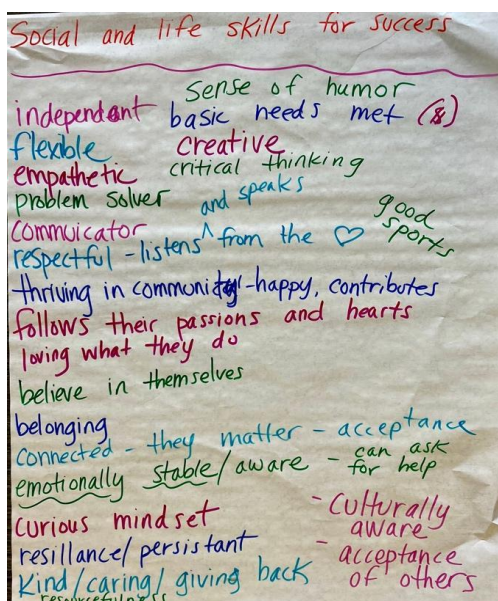 Social and life skills for success
sense of humor
independent basic needs met ($)
flexible creative
empathetic critical thinking
problem solver
and speaks
commuicator
good sports
respectful - listens ^ from the ♡
thriving in community - happy, contributes
follows their passions and hearts
loving what they do
believe in themselves
belonging
connected - they matter - acceptance
emotionally stable/aware - can ask for help
curious mindset
- culturally aware
resillance/persistant
- acceptance of others
Kind/caring/giving back
resourcefulness